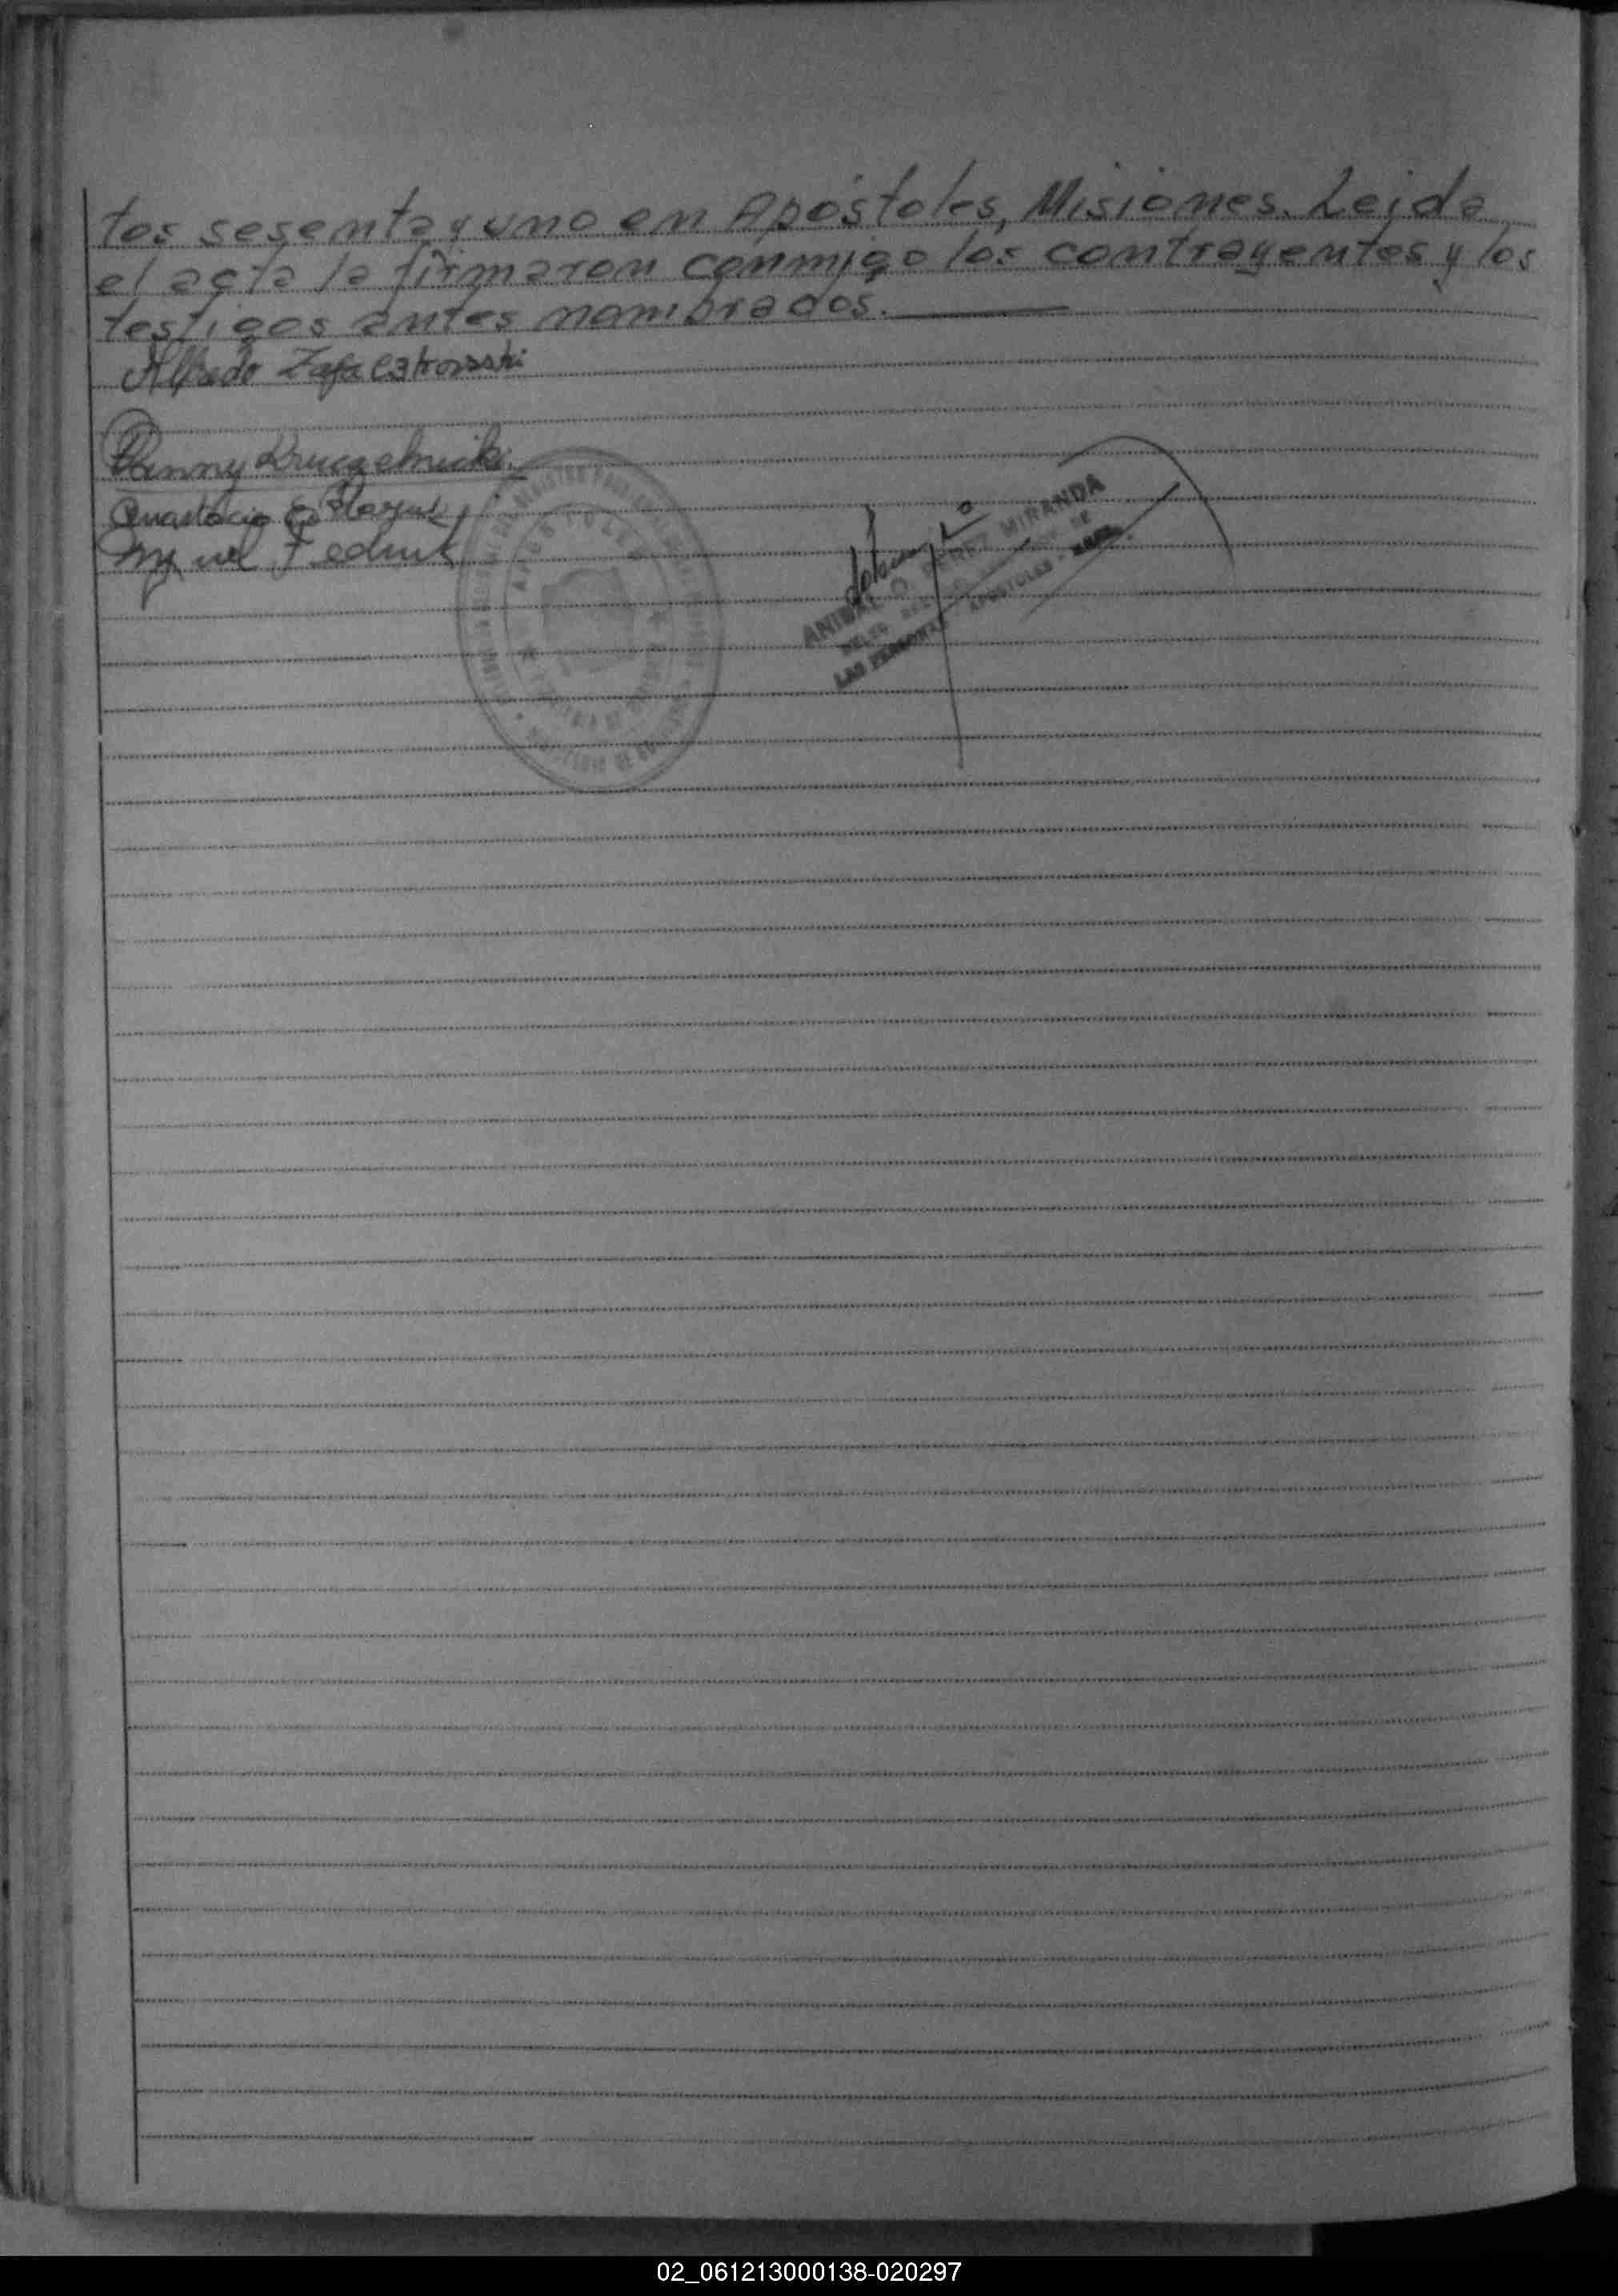 tos sesenta y uno en Apóstoles, Misiones. Leida
el acta la firmaron conmigo los contrayentes y los
testigos antes nombrados.
Alfredo
Fanny Kruczelnicki
Anastacio
Miguel Fediuk
APOSTOLES
ANIBAL O. PEREZ MIRANDA
LAS PERSONAS - APOSTOLES -
02_061213000138-020297